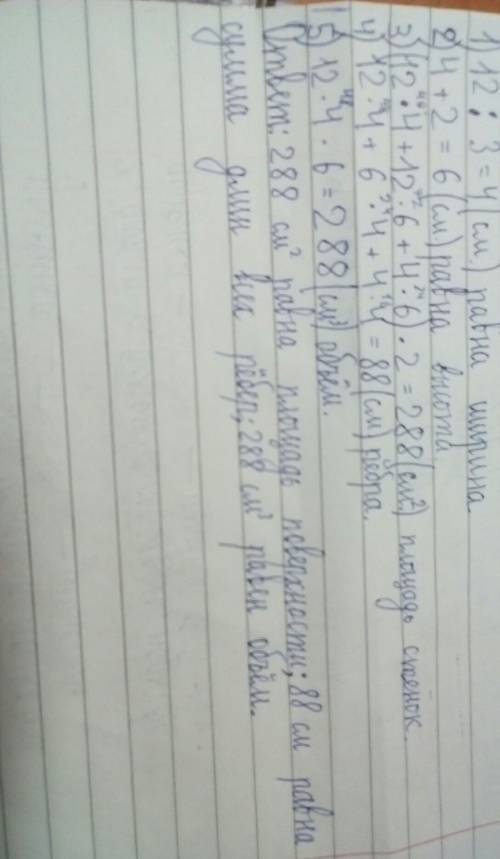 1) 12 : 3 = 4 (см) равна ширина
2) 4 + 2 = 6 (см) равна высота
3) (12 · 4 + 12 · 6 + 4 · 6) · 2 = 288 (см²) площадь стенок.
4) 12 · 4 + 6 · 4 + 4 · 4 = 88 (см) рёбра.
5) 12 · 4 · 6 = 288 (см³) объём.
Ответ: 288 см² равна площадь поверхности; 88 см равна
сумма длин всех рёбер; 288 см³ равен объём.